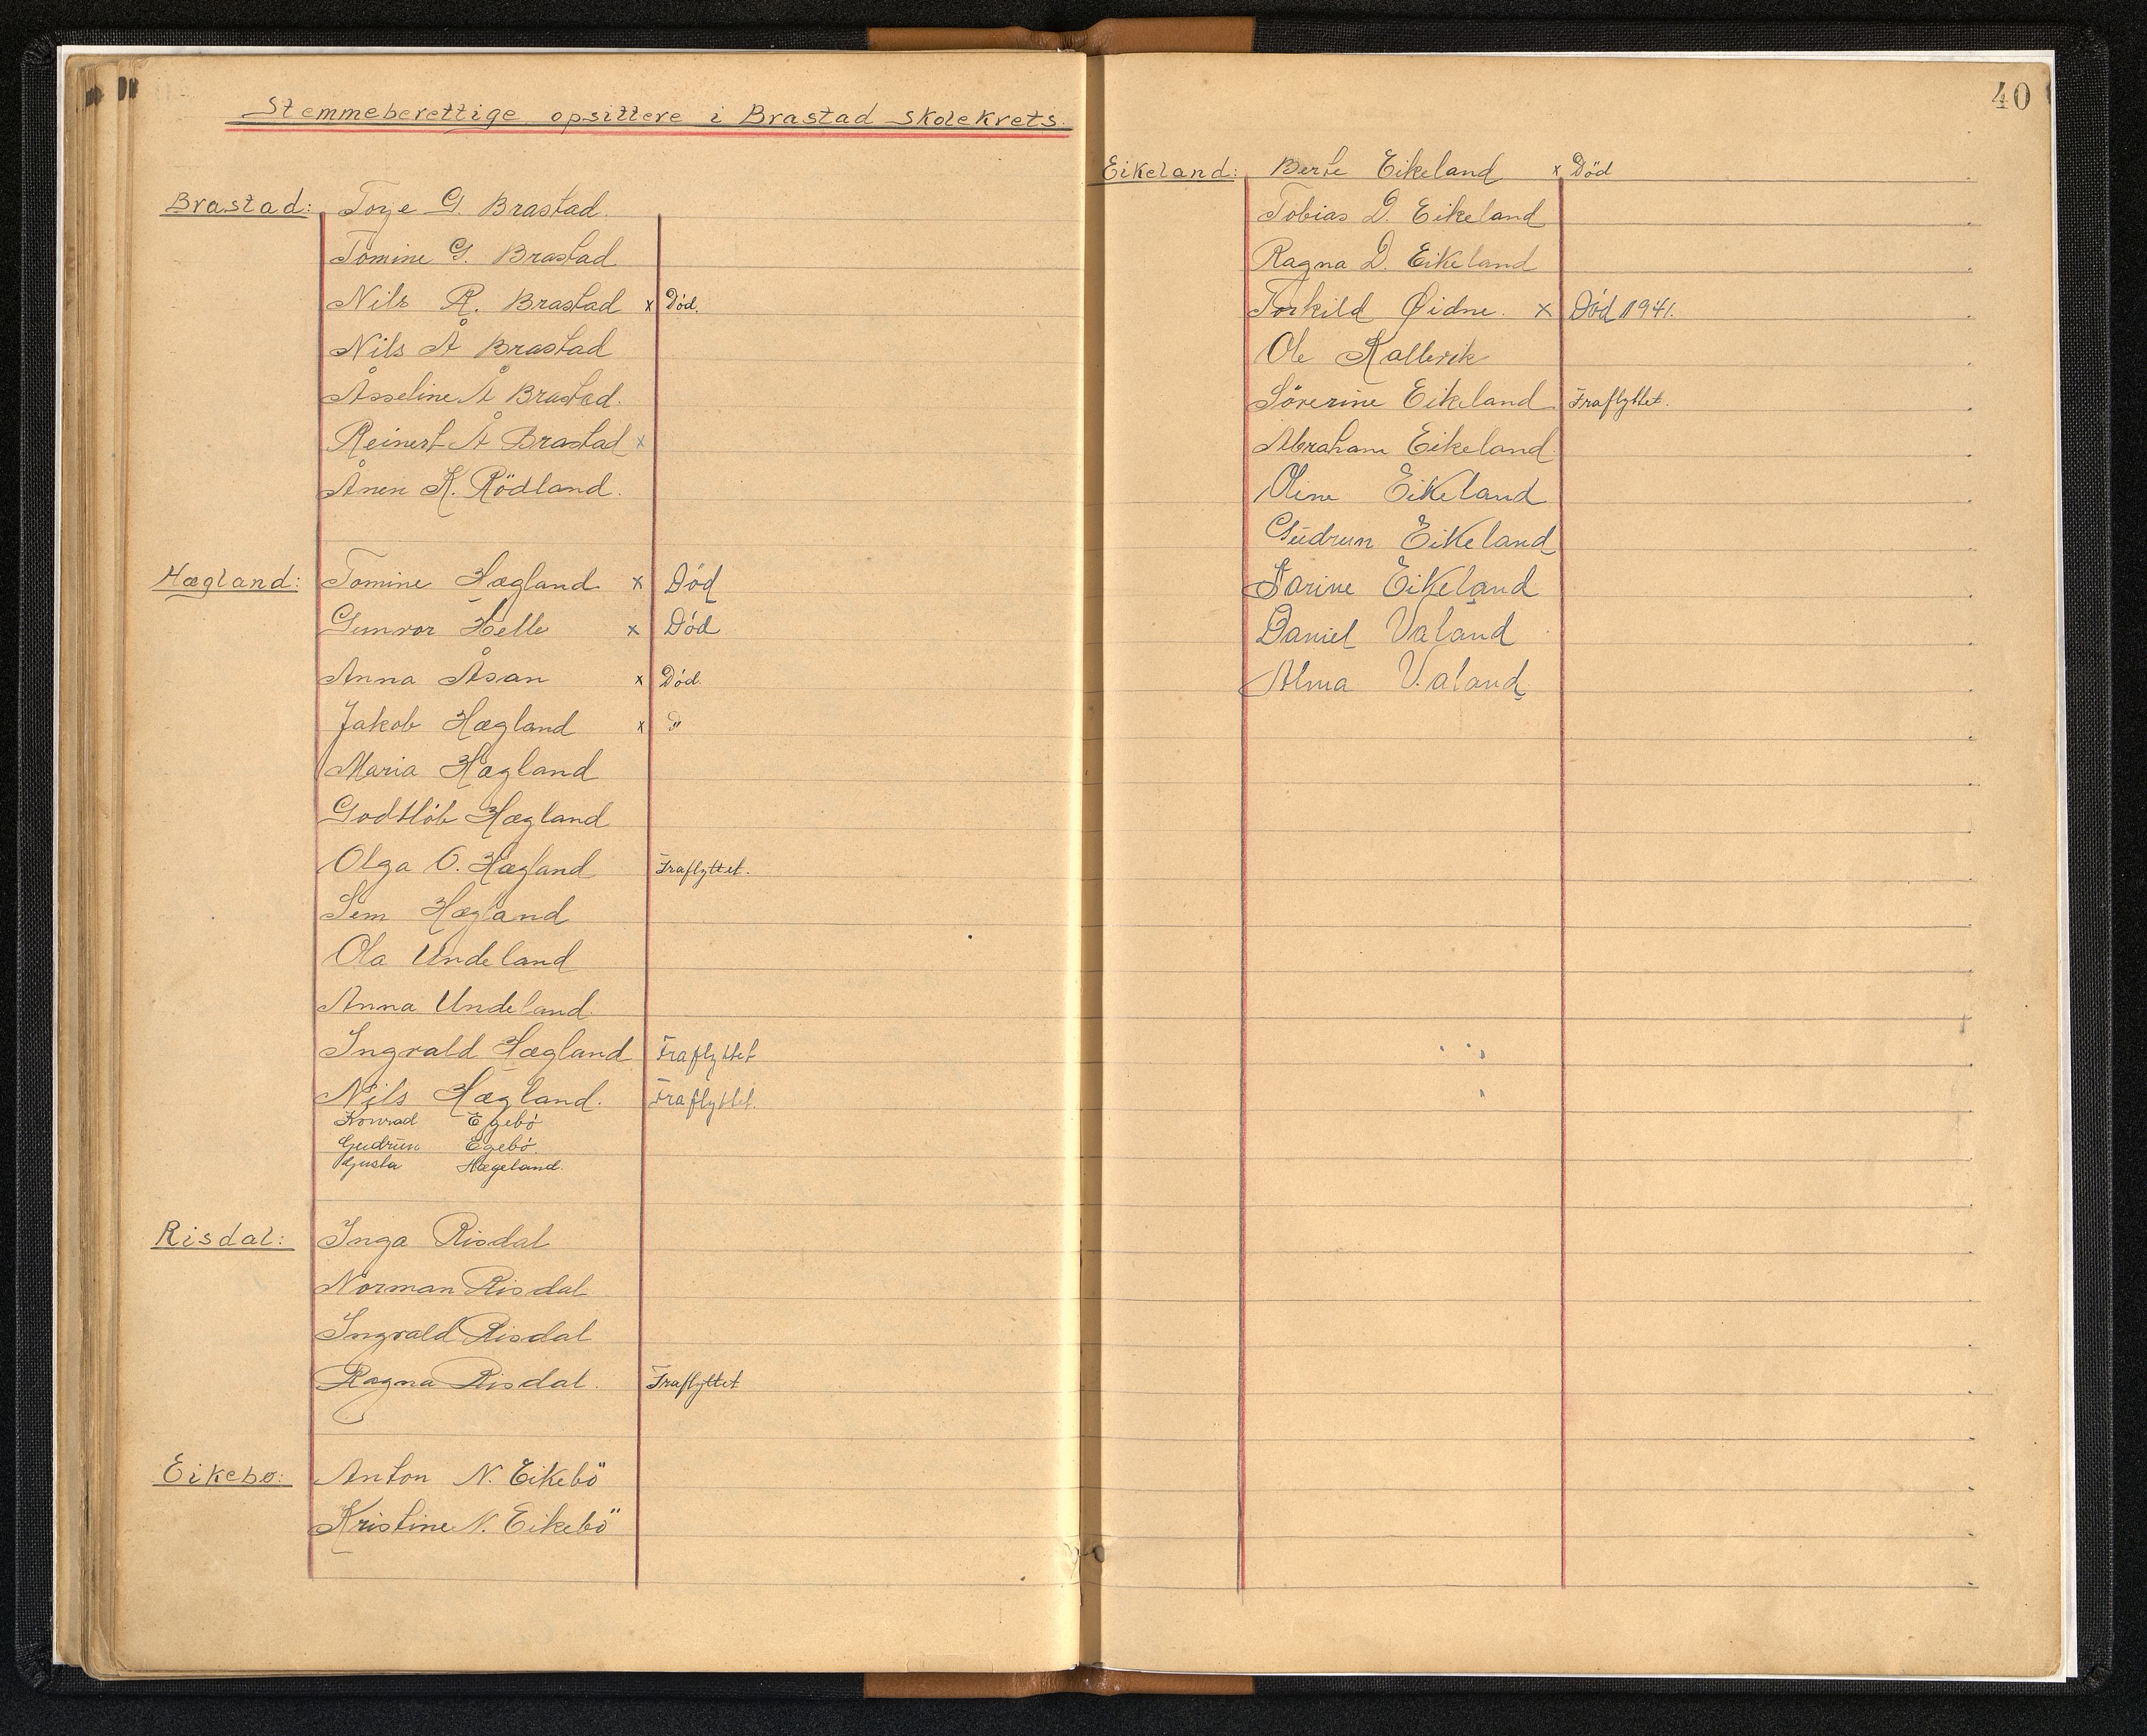 Stemmeberettige opsittere i Brastad skolekrets.
Brastad: Torje G. Brastad.
Tomine G. Brastad
Nils R. Brastad x Död.
Nils Å Brastad
Åsseline Å Brastad.
Reinert Å Brastad x
Ånen K. Rödland.
Hægland: Tomine Hægland x Död
Gunvor Helle x Död
Anna Åsan x Död.
Jakob Hægland x "
Maria Hægland
Godtlöb Hægland
Olga O. Hægland Fraflyttet.
Sem Hægland
Ola Undeland
Anna Undeland.
Ingvald Hægland Fraflyttet
Nils Hægland. Fraflyttet.
Konrad Egebö
Gudrun Egebö.
Gusta Hægeland.
Risdal: Inga Risdal
Norman Risdal
Ingvald Risdal
Ragna Risdal. Fraflyttet
Eikebø: Anton N. Eikebö
Kristine N. Eikebö
40
Eikeland: Berte Eikeland x Död
Tobias D. Eikeland
Ragna D. Eikeland
Torkild Øidne. x Död 1941.
Ole Kallevik
Sörerine Eikeland Fraflyttet.
Abraham Eikeland.
Oline Eikeland
Gudrun Eikeland
Sarine Eikeland
Daniel Valand
Alma Valand.